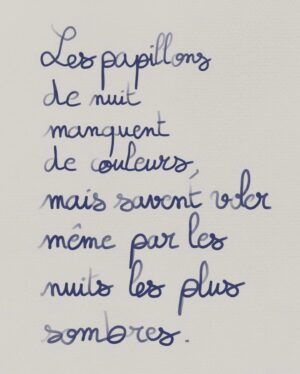 Les papillons
de nuit
manquent
de couleurs,
mais savent voler
même par les
nuits les plus
sombres.